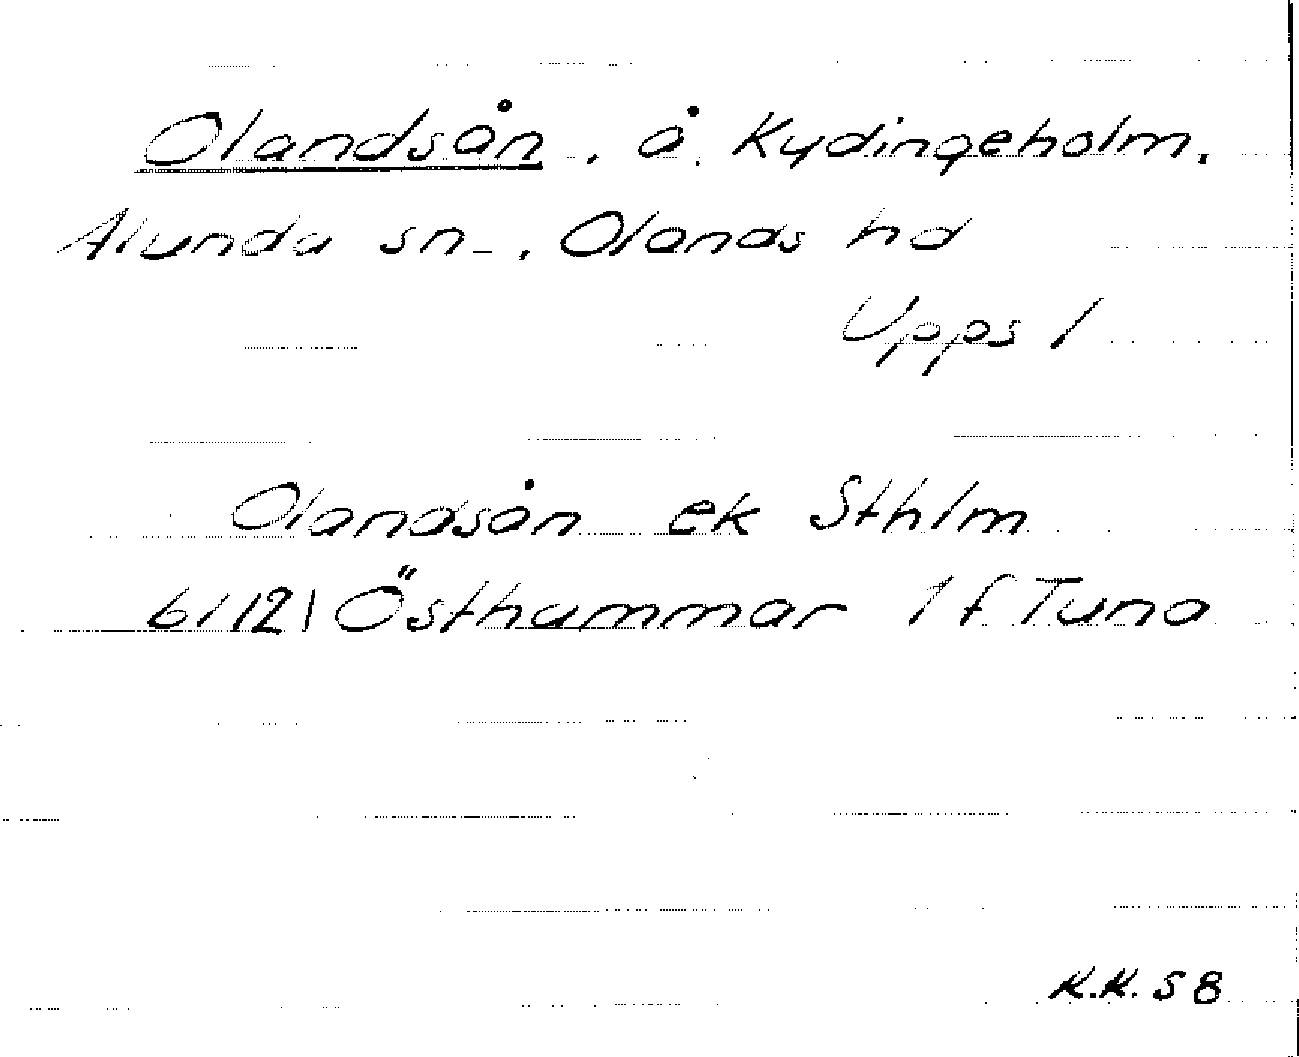 Olandsån, å, Kydingeholm,
Alunda sn, Olands hd
Upps l
Olandsån ek Sthlm
61 12I Östhammar 1 f Tuna
K.K. 58